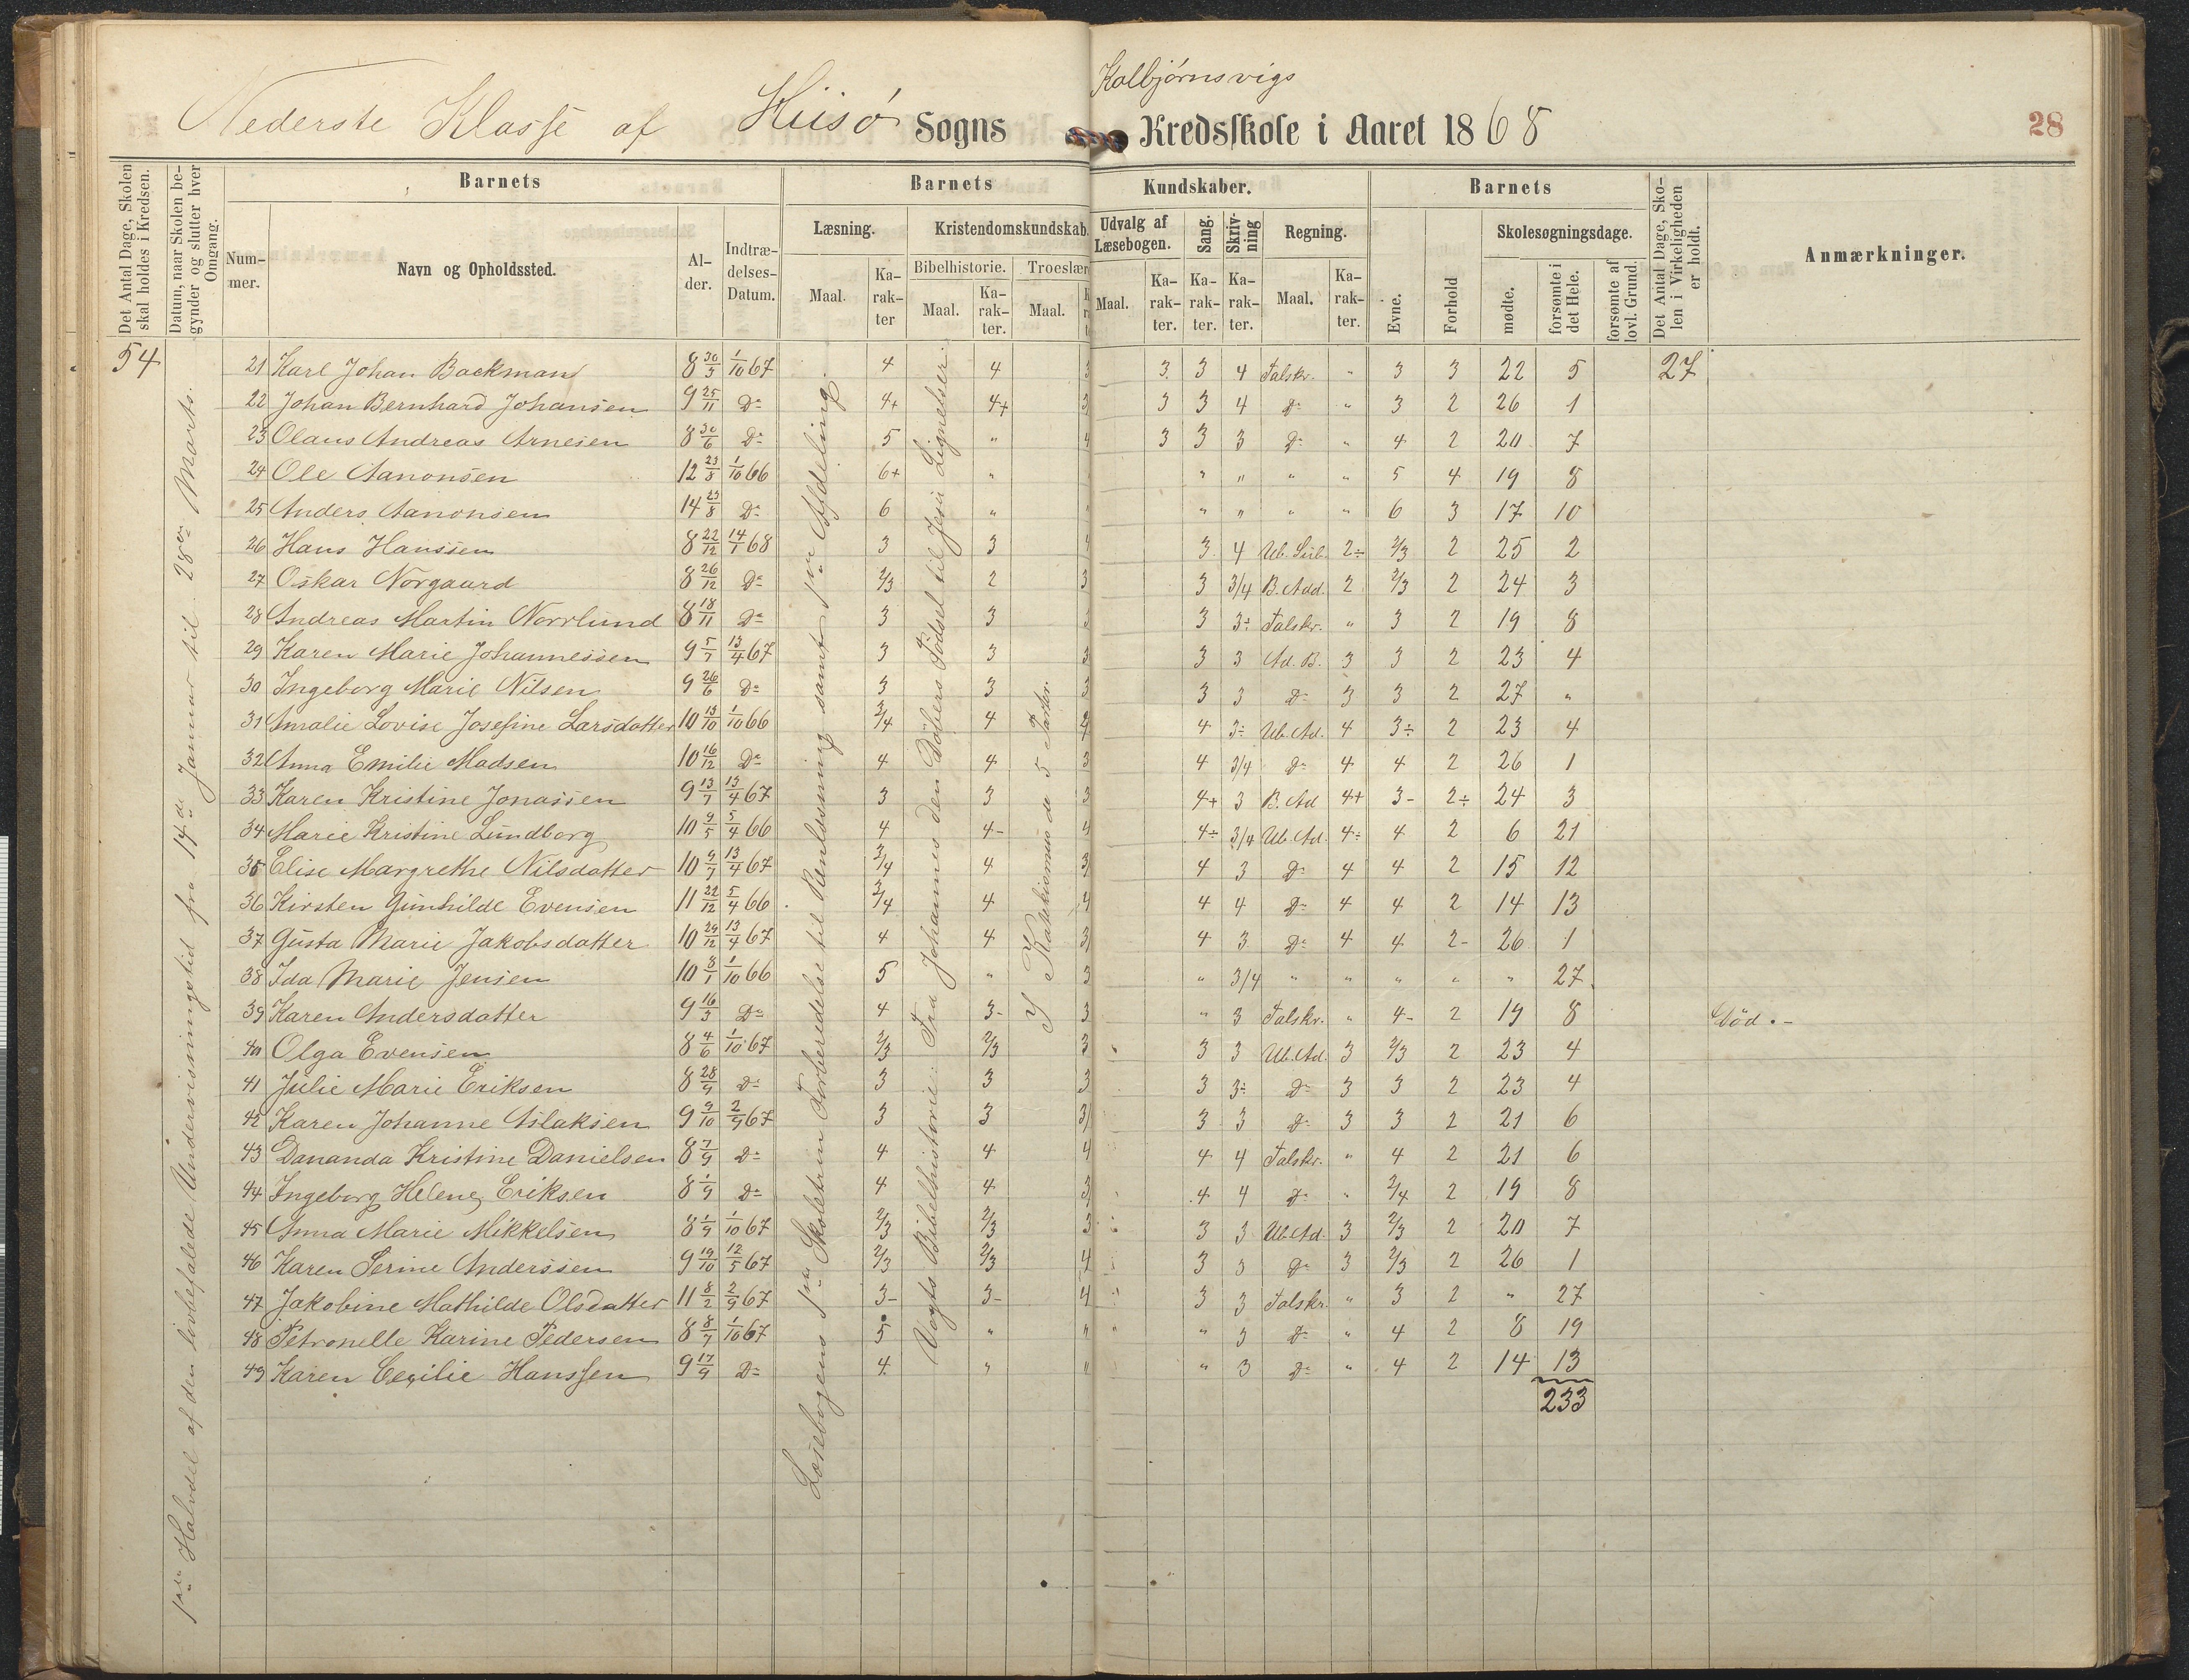 Nederste Klasse af Hiisø Sogns Kolbjørnsvigs Kredsskole i Aaret 1868
28
Det Antal Dage, Skolen skal holdes i Kredsen.
Datum, naar Skolen begynder og slutter hver Omgang.
Barnets
Nummer.
Navn og Opholdssted.
Alder.
Indtrædelses-Datum.
Barnets
Læsning.
Maal.
Karakter
Kristendomskundskab.
Bibelhistorie.
Maal.
Karakter.
Troeslær
Maal.
Kundskaber.
Udvalg af Læsebogen.
Maal.
Karakter.
Sang.
Karakter.
Skrivning
Karakter.
Regning.
Maal.
Karakter.
Barnets
Evne.
Forhold
Skolesøgningsdage.
mødte.
forsømte i det Hele.
forsømte af lovl. Grund.
Det Antal Dage, Skolen i Virkeligheden er holdt.
Anmærkninger.
54
1ste Halvdel af den lovbefalede Undervisningstid fra 14de Januar til 28de Marts.
Læsebogens 1ste Skoletrin Forberedelse til Renlæsning samt 1ste Afdeling.
Vogts Bibelhistorie: Fra Johannes den Døbers Fødsel til Jesu Lignelser.
I Katekismus de 5 Parter.
21 Karl Johan Backman 8 30/5 1/10 67 4 4 3 3 3 4 Talskr. " 3 3 22 5 27
22 Johan Bernhard Johansen 9 25/11 Do 4+ 4+ 3 3 3 4 Do " 3 2 26 1
23 Olaus Andreas Arnesen 8 30/6 Do 5 " 4 3 3 3 Do " 4 2 20 7
24 Ole Aanonsen 12 23/8 1/10 66 6+ " " " " " 5 4 19 8
25 Anders Aanonsen 14 23/8 Do 6 " " " " " " 6 3 17 10
26 Hans Hanssen 8 22/12 14/1 68 3 3 4 3 4 Ub. Sub. 2÷ 2/3 2 25 2
27 Oskar Norgaard 8 26/12 Do 2/3 2 3 3 3/4 B. Add. 2 2/3 2 24 3
28 Andreas Martin Norrlund 8 18/11 Do 3 3 3 3 3÷ Talskr. " 3 2 19 8
29 Karen Marie Johannessen 9 5/7 13/4 67 3 3 3 3 3 Ad. B. 3 3 2 23 4
30 Ingeborg Marie Nilsen 9 26/6 Do 3 3 3 3 3 Do 3 3 2 27 "
31 Amalie Lovise Josefine Larsdatter 10 13/10 1/10 66 3/4 4 4 4 3÷ Ub. Ad. 4 3÷ 2 23 4
32 Anna Emilie Madsen 10 16/12 Do 4 4 3 4 3/4 Do 4 4 2 26 1
33 Karen Kristine Jonassen 9 13/7 13/4 67 3 3 3 4+ 3 B. Ad 4+ 3- 2÷ 24 3
34 Marie Kristine Lundborg 10 9/5 5/4 66 4 4- 4 4÷ 3/4 Ub. Ad. 4÷ 4 2 6 21
35 Elise Margrethe Nilsdatter 10 9/7 13/4 67 3/4 4 3 4 3 Do 4 4 2 15 12
36 Kirsten Gunhilde Evensen 11 22/12 5/4 66 3/4 4 4 4 4 Do 4 4 2 14 13
37 Gusta Marie Jakobsdatter 10 29/12 13/4 67 4 4 3 4 3 Do 4 4 2- 26 1
38 Ida Marie Jensen 10 8/1 1/10 66 5 " 3 " 3/4 " " " " " 27
39 Karen Andersdatter 9 16/3 Do 4 3- 3 " 3 Talskr. " 4- 2 19 8 Død.-
40 Olga Evensen 8 4/6 1/10 67 2/3 2/3 3 3 3 Ub. Ad. 3 2/3 2 23 4
41 Julie Marie Eriksen 8 28/9 Do 3 3 3 3 3÷ Do 3 3 2 23 4
42 Karen Johanne Aslaksen 9 9/10 2/9 67 3 3 3 3 3 Do 3 3 2 21 6
43 Dananda Kristine Danielsen 8 7/9 Do 4 4 4 4 4 Talskr. " 4 2 21 6
44 Ingeborg Helene Eriksen 8 1/9 Do 4 4 3 4 4 Do " 3/4 2 19 8
45 Anna Marie Mikkelsen 8 1/9 1/10 67 2/3 2/3 3 3 3 Ub. Ad. 3 2/3 2 20 7
46 Karen Serine Anderssen 9 19/10 12/5 67 2/3 2/3 4 3 3 Do 3 2/3 2 26 1
47 Jakobine Mathilde Olsdatter 11 8/2 2/9 67 3- 3- 4 3 3 Talskr. " 3 2 " 27
48 Petronelle Karine Pedersen 8 8/7 1/10 67 5 " " " " 3 Do " 4 2 8 19
49 Karen Cecilie Hanssen 9 17/9 Do 4. " " " 3 Do " 4 2 14 13
233